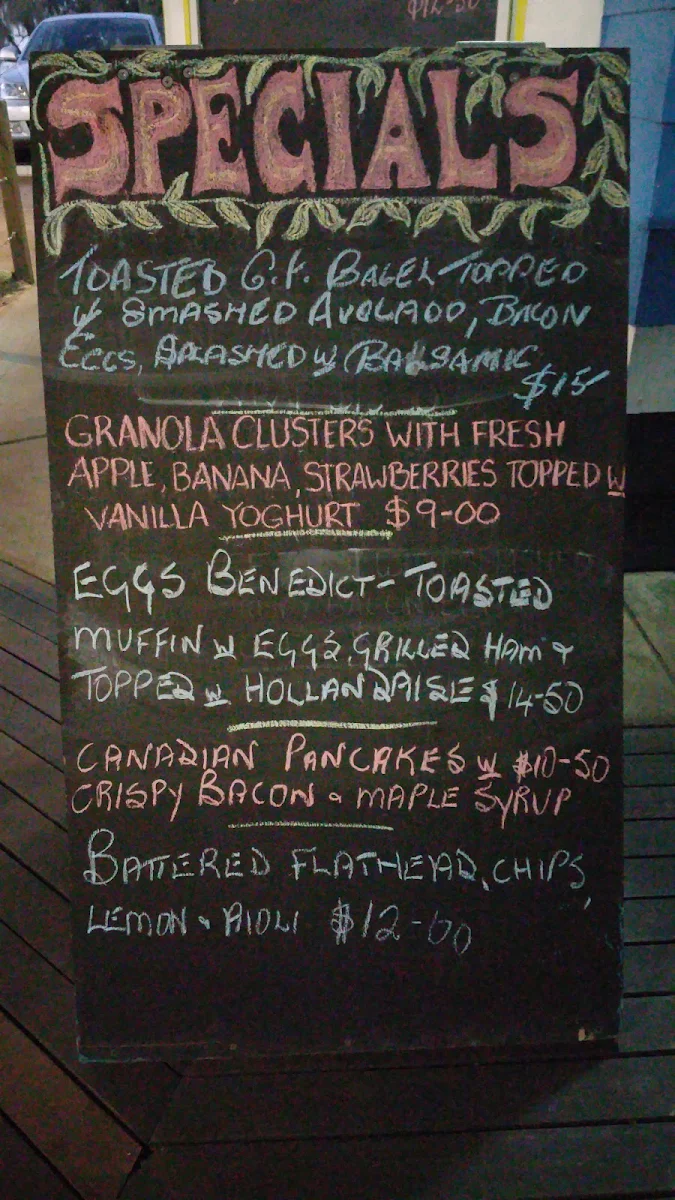 $12-50
SPECIALS
TOASTED G.F. BAGEL TOPPED
W SMASHED AVOCADO, BACON
EGGS, SPLASHED W BALSAMIC
$15
GRANOLA CLUSTERS WITH FRESH
APPLE, BANANA, STRAWBERRIES TOPPED W
VANILLA YOGHURT $9-00
EGGS BENEDICT - TOASTED
MUFFIN W EGGS, GRILLED HAM &
TOPPED W HOLLANDAISE $14-50
CANADIAN PANCAKES W $10-50
CRISPY BACON & MAPLE SYRUP
BATTERED FLATHEAD, CHIPS,
LEMON & AIOLI $12-00